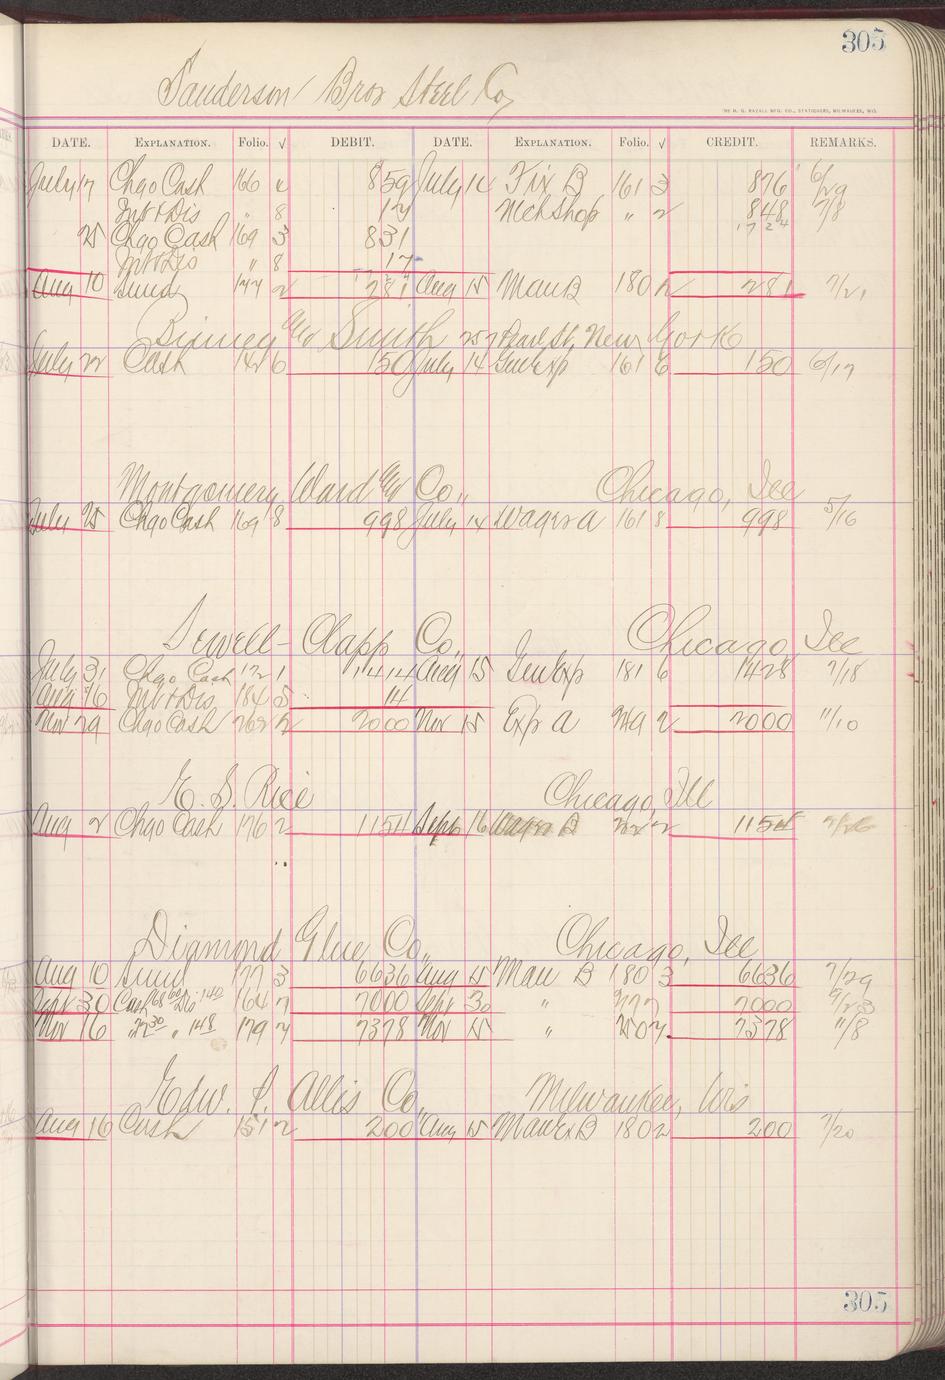 305
Sanderson Bros Steel Co,
THE H. G. RAZALL MFG. CO., STATIONERS, MILWAUKEE, WIS.
DATE. EXPLANATION. Folio. √ DEBIT. DATE. EXPLANATION. Folio. √ CREDIT. REMARKS.
July 17 Chgo Cash 166 4 859 July 14 Fix B 161 3 876 6/29
Int & Dis " 8 17 Mch Shop " 2 848 7/8
25 Chgo Cash 169 3 831 1724
Int & Dis " 8 17
Aug 10 Sund 177 2 281 Aug 15 Man B 180 2 281 7/21
Binney & Smith 257 Pearl St, New York
July 22 Cash 142 6 150 July 14 Gen Exp 161 6 150 6/17
Montgomery Ward & Co., Chicago, Ill
July 25 Chgo Cash 169 8 998 July 14 Wages A 161 8 998 5/16
Sewell-Clapp Co., Chicago Ill
July 31 Chgo Cash 172 1 1414 Aug 15 Gen Exp 181 6 1428 7/18
Aug 16 Int & Dis 184 5 14
Nov 29 Chgo Cash 262 2 2000 Nov 15 Exp A 249 2 2000 11/10
E. S. Rice Chicago, Ill
Aug 2 Chgo Cash 176 2 1154 Sept 16 Wages B 2 1154
Diamond Glue Co., Chicago, Ill
Aug 10 Sund 177 3 6636 Aug 15 Man B 180 3 6636 7/29
Sept 30 Cash 68 60 Dis 1 40 164 7 7000 Sept 30 " 227 7000 9/23
Nov 16 " 72 30 " 1 48 179 7 7378 Nov 15 " 250 7 7378 11/8
Edw. P. Allis Co., Milwaukee, Wis
Aug 16 Cash 151 2 200 Aug 15 Man Ex B 180 2 200 7/20
305